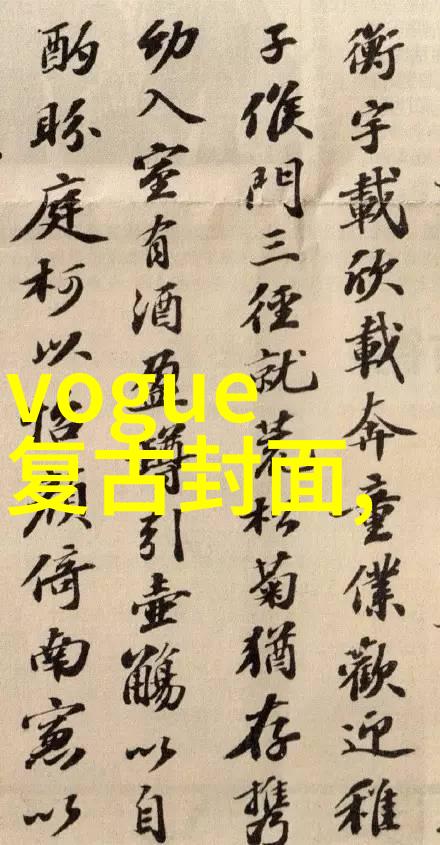 衡宇載欣載奔童僕歡迎稚
子候門三徑就荒松菊猶存携
幼入室有酒盈罇引壺觴以自
酌眄庭柯以怡顏倚南窓以
vogue
复古封面,